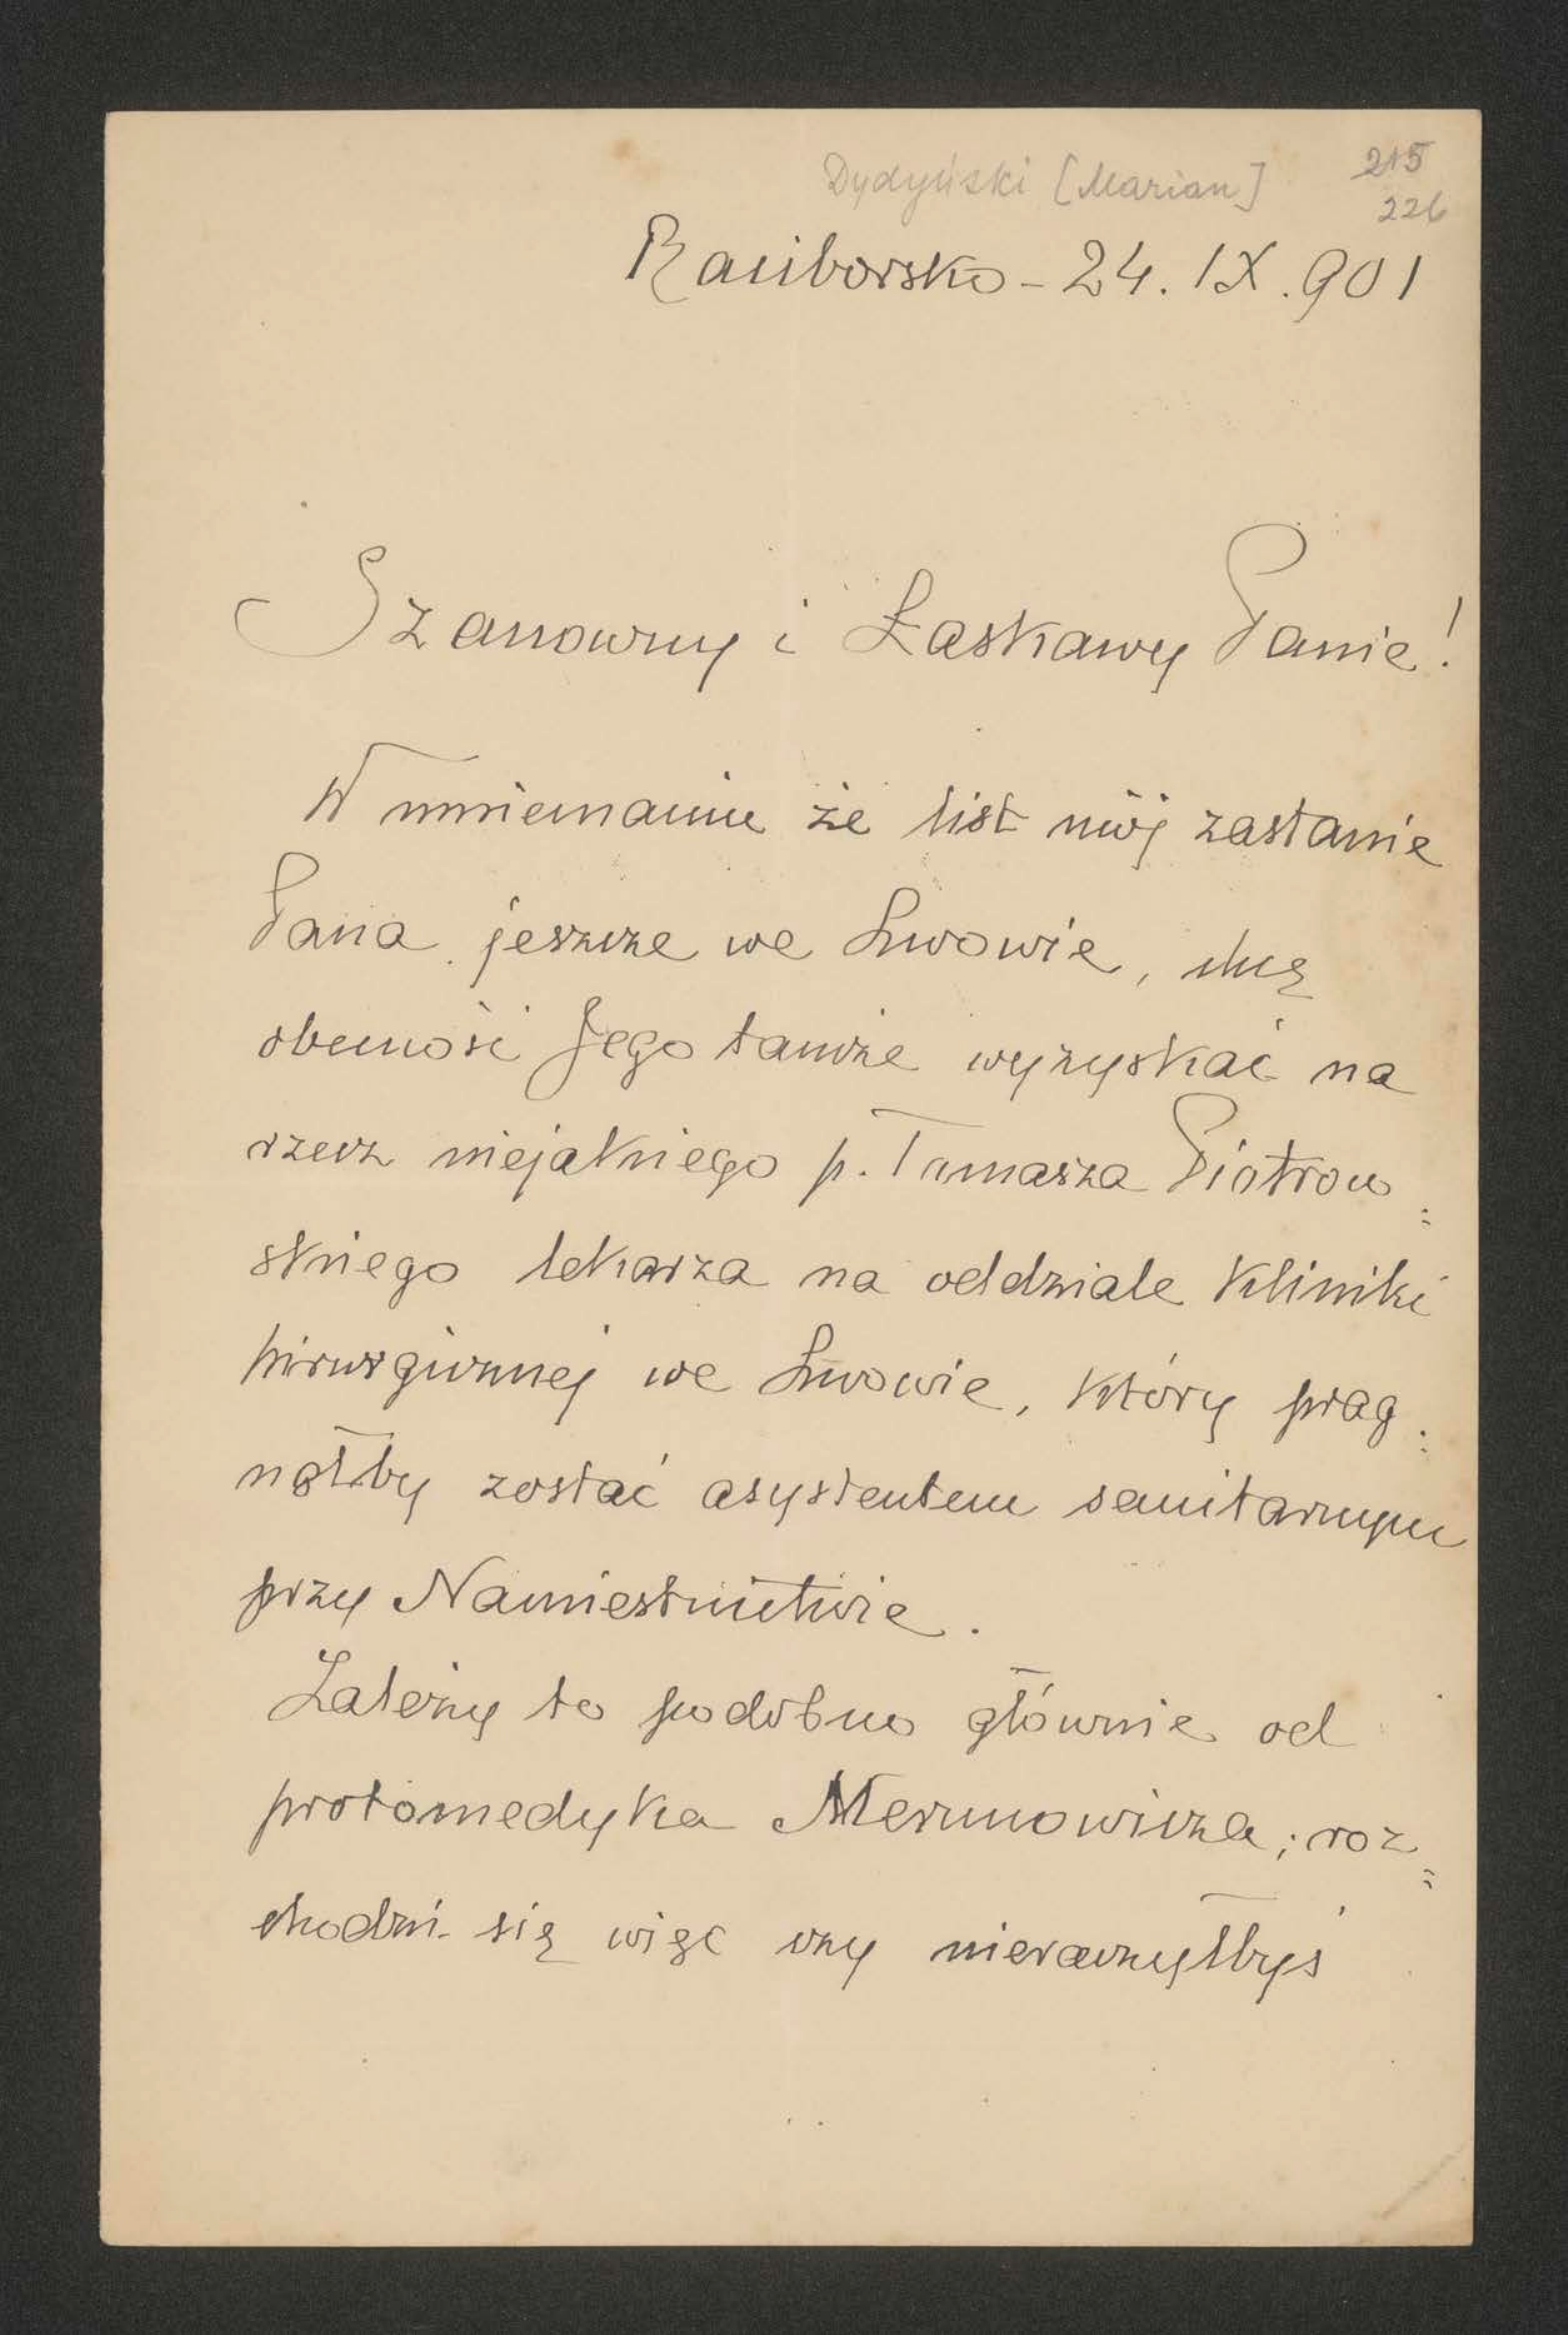 Dydyński [Marian] 215
226
Raciborsko - 24. IX. 901
Szanowny i Łaskawy Panie!
W mniemaniu że list mój zastanie
Pana jeszcze we Lwowie, chcę
obecność Jego tamże wyzyskać na
rzecz niejakiego p. Tomasza Piotrow=
skiego lekarza na oddziale kliniki
hirurgicznej we Lwowie, który prag=
nąłby zostać asystentem sanitarnym
przy Namiestnictwie.
Zależy to podobno głównie od
protomedyka Merunowicza; roz=
chodzi się więc czy nieraczyłbyś